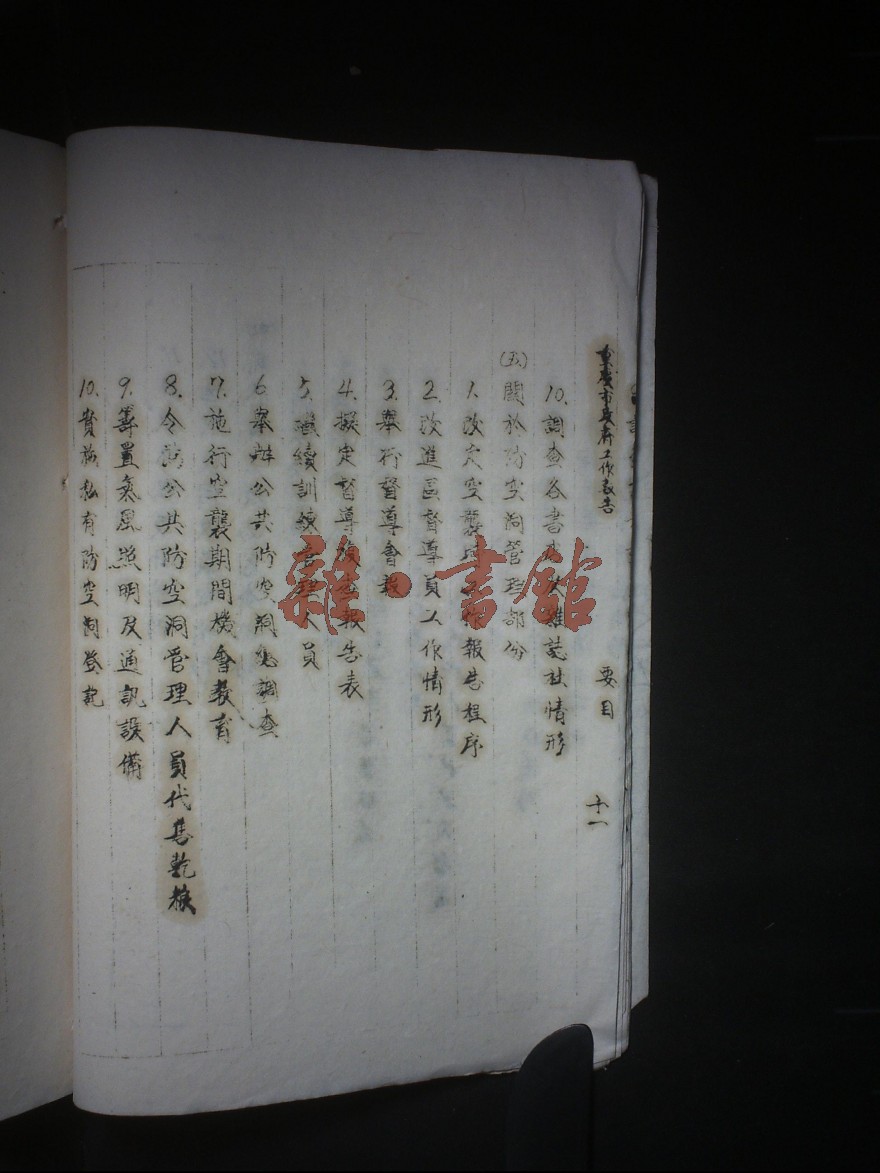 重慶市政府工作報告 要目 十一
10. 調查各書店及雜誌社情形
(五) 關於防空洞管理部份
1. 改定空襲工作報告程序
2. 改進區督導員工作情形
3. 舉行督導會報
4. 擬定督導報告表
5. 繼續訓練管理人員
6. 舉辦公共防空洞總調查
7. 施行空襲期間機會教育
8. 令飭公共防空洞管理人員代售乾糧
9. 籌置氣風照明及通訊設備
10. 實施私有防空洞登記
雜·書館